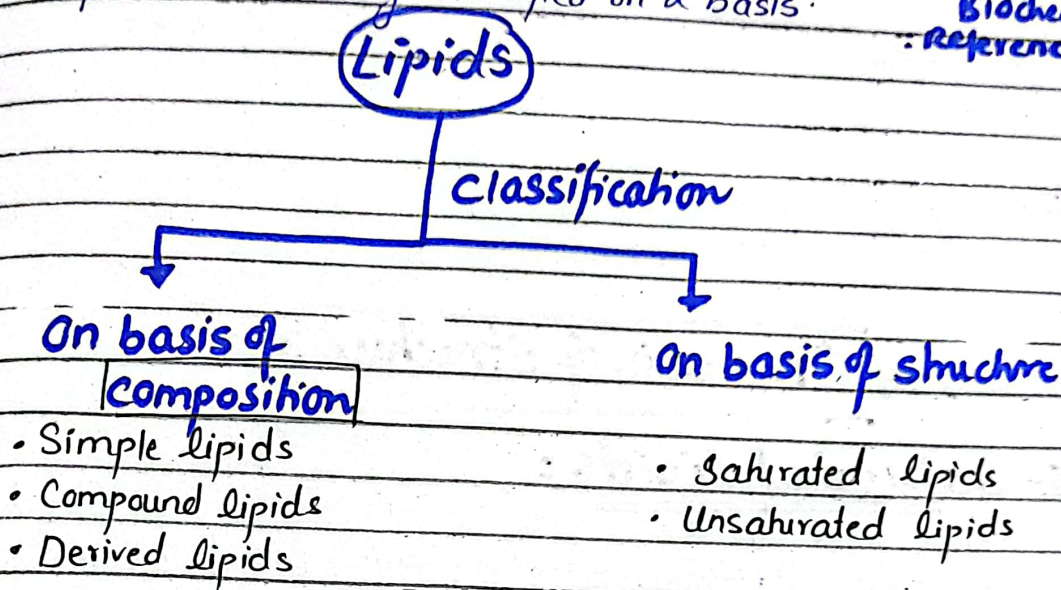 on a basis.
Lipids
Classification
On basis of
composition
• Simple lipids
• Compound lipids
• Derived lipids
On basis of structure
• Saturated lipids
• Unsaturated lipids